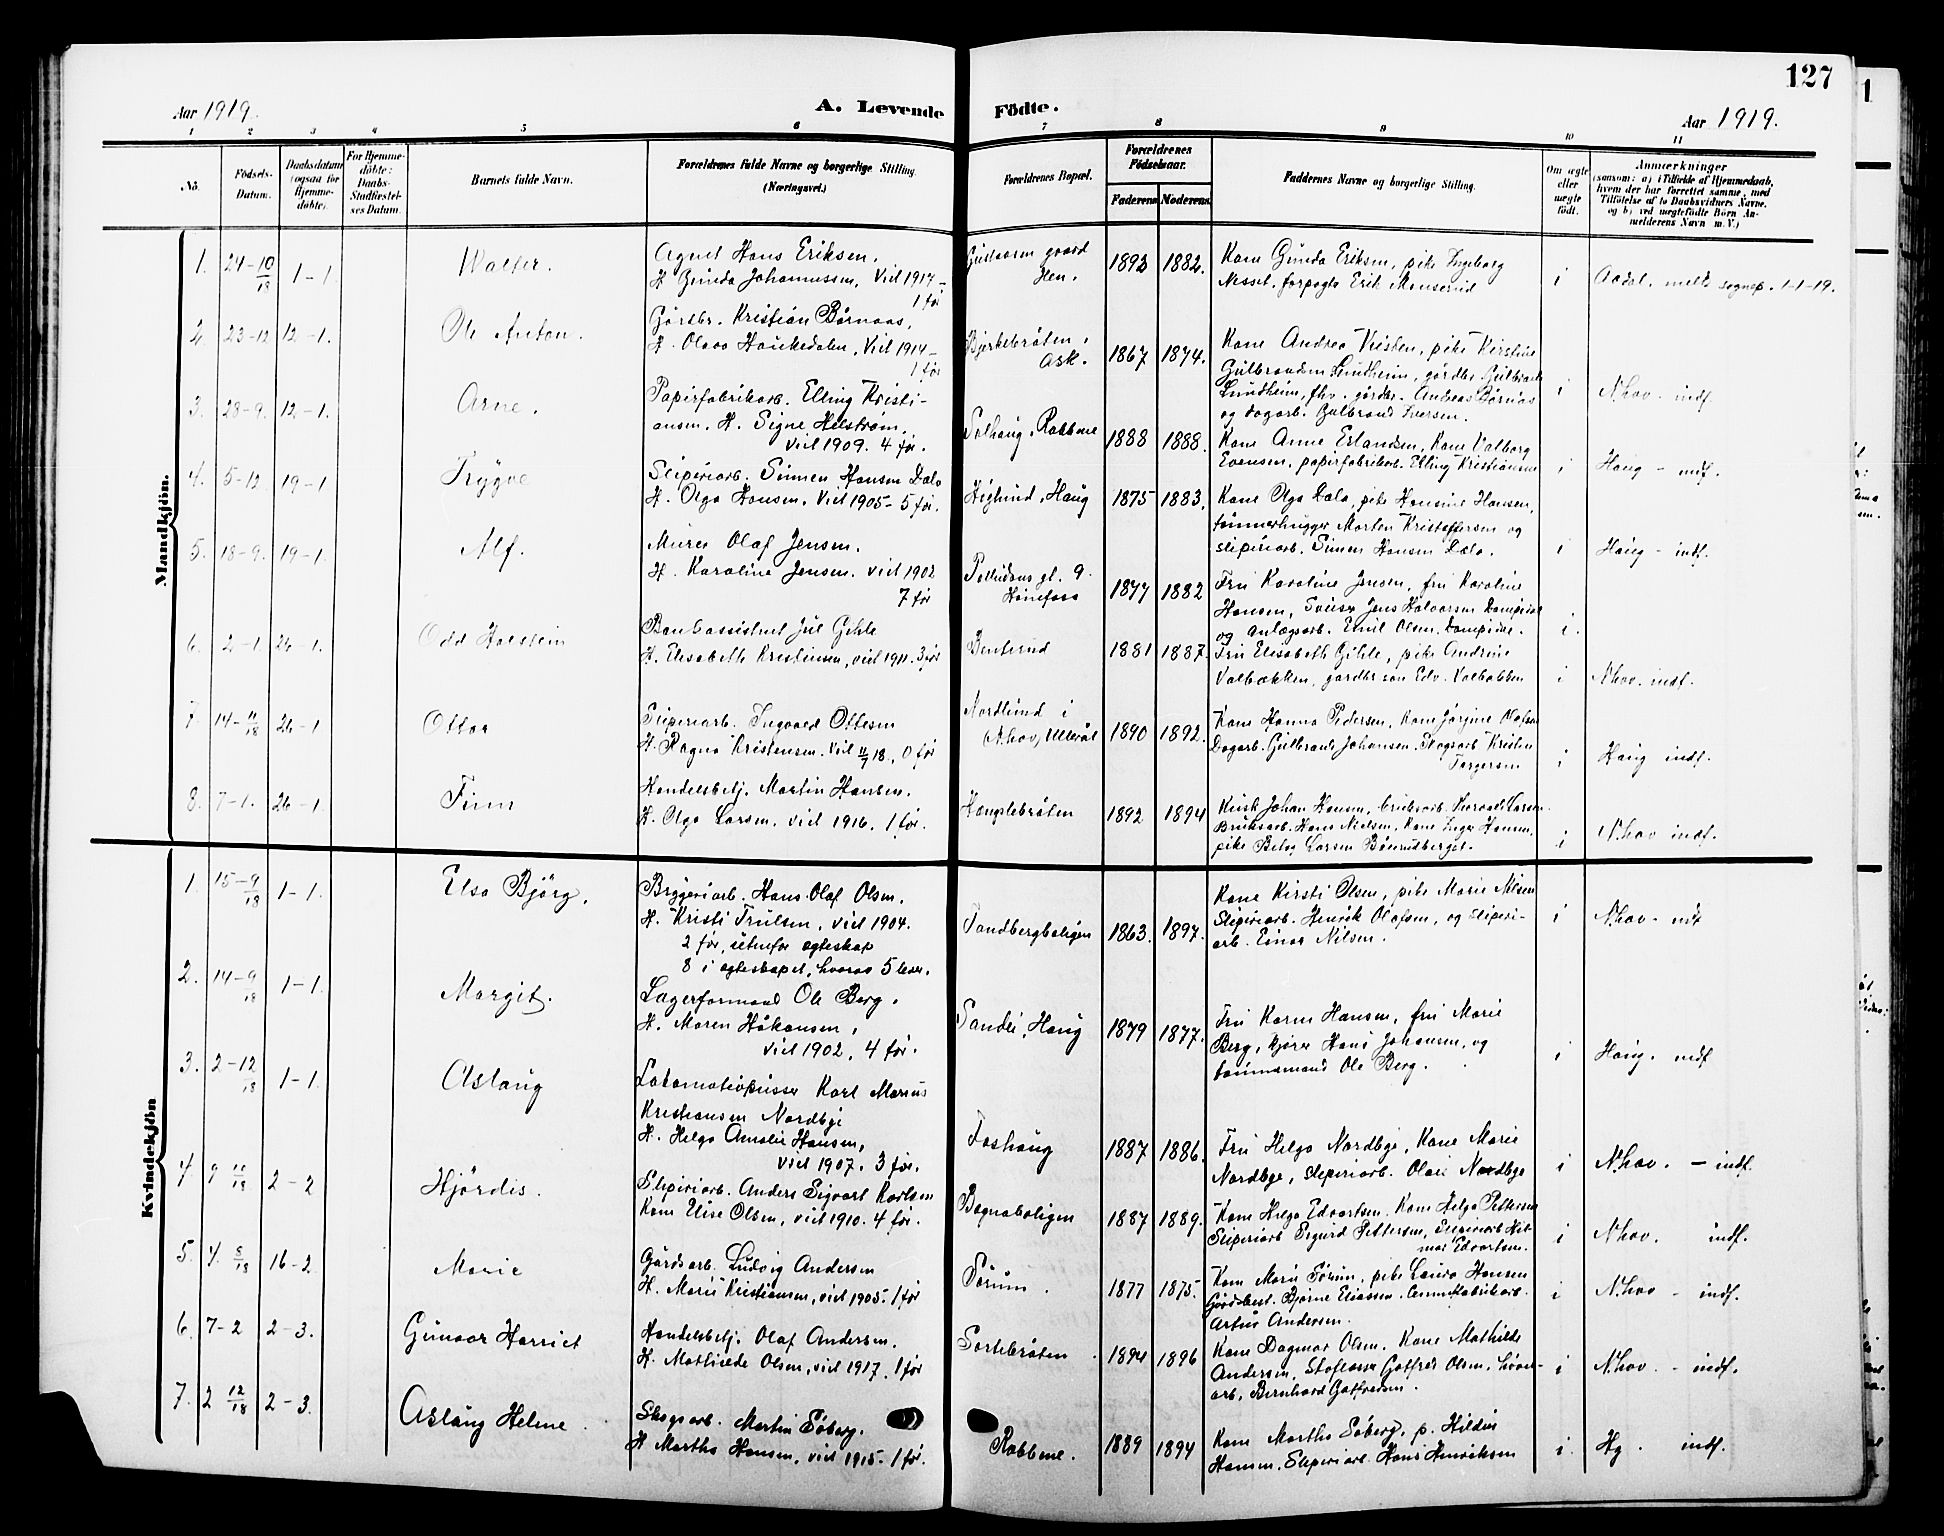 127
Aar 1919.
A. Levende Födte.
Aar 1919.
1 2 3 4 5 6 7 8 9 10 11
No.
Födsels-Datum.
Daabsdatum (ogsaa for Hjemme-döbte).
For Hjemme-döbte: Daabs-Stadfæstel-ses Datum.
Barnets fulde Navn.
Forældrenes fulde Navne og borgerlige Stilling. (Næringsvei.)
Forældrenes Bopæl.
Forældrenes Födselsaar.
Faderens Moderens
Faddernes Navne og borgerlige Stilling.
Om ægte eller uægte födt.
Anmærkninger
(saasom: a) i Tilfælde af Hjemmedaab,
hvem der har forrettet samme, med
Tilföielse af to Daabsvidners Navne,
og b) ved uægtefödte Börn An-
melderens Navn m. V.)
Mandkjön.
1. 24-10/18 1-1 Walter. Agent Hans Eriksen.
H Gunda Johannessen, Viet 1917 - 1 før
Hen. 1893 1882. Kone Gunda Eriksen, pike Ingeborg
Nesset, forpagter Erik Monserud i Aadal. melt sognep. 1-1-19.
2. 23-12 12-1. Ole Anton. Gårdbr. Kristian Børnaas,
H. Olava Haukedalen, Viet 1914 - 1 før
Bjerkebråten, Ask. 1867 1874. Kone Andrea Vesten, pike Kirstine
Gulbrandsen Lundheim, gårdbr. Gulbrand
Lundheim, fhv. gårdbr. Andreas Børnås
og dagarb. Gulbrand Iversen. i N.hov. indf.
3. 28-9. 12-1. Arne. Papirfabrikarb. Elling Kristi-
ansen. H. Signe Helstrøm.
viet 1909. 4 før.
Solhaug, Robbme 1888 1888. Kone Anne Erlandsen, Kone Valborg
Evensen, papirfabrikarb. Elling Kristiansen i Haug - indf.
4. 5-12 19-1 Trygve Sliperiarb. Simen Hansen Dæla
H. Olga Hansen, Viet 1905 - 5 før.
Høglund, Haug 1875 1883. Kone Olga Dæla, pike Hansine Hansen,
tømmerhugger Morten Kristoffersen og
sliperiarb. Simen Hansen Dæla. i Haug - indf.
5. 18-9. 19-1. Alf. Murer Olaf Jensen.
H. Karoline Jensen. viet 1902
7 før
gl. 9. Hønefoss 1877 1882 Fru Karoline Jensen, fru Karoline
Hansen, Jens Halvorsen
og anlægsarb. Emil Olsen. i.
6. 2-1. 26-1. Odd Holstein Bankassistent Jul Gihle
H. Elisabeth Kristensen, viet 1911. 3 før
Benterud 1881 1887. Fru Elisabeth Gihle, pike Andrine
Valbakken, gardbr søn Edv. Valbakken i N.hov. indf.
7. 14-11/18 26-1 Ottar Sliperiarb. Ingvald Ottesen
H. Ragna Kristensen. Viet 11/7 18., 0 før
Nordlund i (N.hov) Ullerål 1890 1892. Kone Hanna Pedersen, Kone Jørgine Olafsen
Dagarb. Gulbrand Johansen. Skogsarb Kristen
Torgersen i Haug indf.
8. 7-1. 26-1. Finn Handelsbetj. Martin Hansen.
H. Olga Larsen, viet 1916. 1 før.
Honglebråten 1892 1894 Kusk Johan Hansen, bruksarb. Harald Larsen
Bruksarb. Hans Nielsen, Kone Inger Hansen,
pike Betsy Larsen Bøenidberget. i N.hov indf.
Kvindekjön
1. 15-9/18 1-1. Elsa Björg. Bryggeriarb. Hans Olaf Olsen.
H. Kristi Trulsen, viet 1904.
2 før, utenfor egteskap
8 i egteskapet, hvorav 5 lever.
Tandbergboligen 1863. 1897. Kone Kirsti Olsen, pike Marie Nilsen
Sliperiarb. Henrik Olafsen, og sliperi-
arb. Einar Nilsen. i N.hov - indf
2. 14-9/18 1-1. Margit. Lagerformand Ole Berg.
H. Maren Håkonsen,
viet 1902, 4 før.
Haug 1879 1877. Fru Karen Hansen, fru Marie
Berg, kjører Hans Johansen, og
Ole Berg. i Haug. indf
3. 2-12/18 1-1. Aslaug Lokomotivpusser Karl Marius
Kristiansen Nordbye
H. Helga Amalie Hansen,
viet 1907. 3 før.
Foshaug 1887 1886. Fru Helga Nordbye, Kone Marie
Nordbye, sliperiarb. Olai Nordbye i N.hov. - indf.
4. 9 11/18 2-2 Hjördis. Sliperiarb. Anders Sigvart Karlsen
Kone Elise Olsen, viet 1910. 4 før.
Begnaboligen 1887 1889. Kone Helga Edvartsen. Kone Helga Pettersen
Sliperiarb Sigurd Pettersen, Sliperiarb Hil-
mar Edvartsen. i N.hov. indf.
5. 4. 8/18 16-2 Marie Gårdsarb. Ludvig Andersen
H. Marie Kristiansen, viet 1905. 1 før
Sørum. 1877 1875. Kone Marie Sørum, pike Laura Hansen
Gårdsbest. Bjarne Eliassen. Cementfabrikarb.
Artur Andersen. i N.hov - indf.
6. 7-2 2-3. Gunvor Harriet Handelsbetj. Olaf Andersen.
H. Mathilde Olsen, viet 1917. 1 før
Sortebråten. 1894 1896 Kone Dagmar Olsen. Kone Mathilde
Andersen, Gotfred Olsen,
arb. Bernhard Gotfredsen. i N.hov. - indf.
7. 2 12/18 2-3. Aslaug Helene. Skogsarb. Martin Søberg.
H Martha Hansen, viet 1915 - 1 før.
Robbme. 1889 1894 Kone Martha Søberg, p. Hildur
Hansen, Sliperiarb. Hans Henriksen i. Hg. indf.